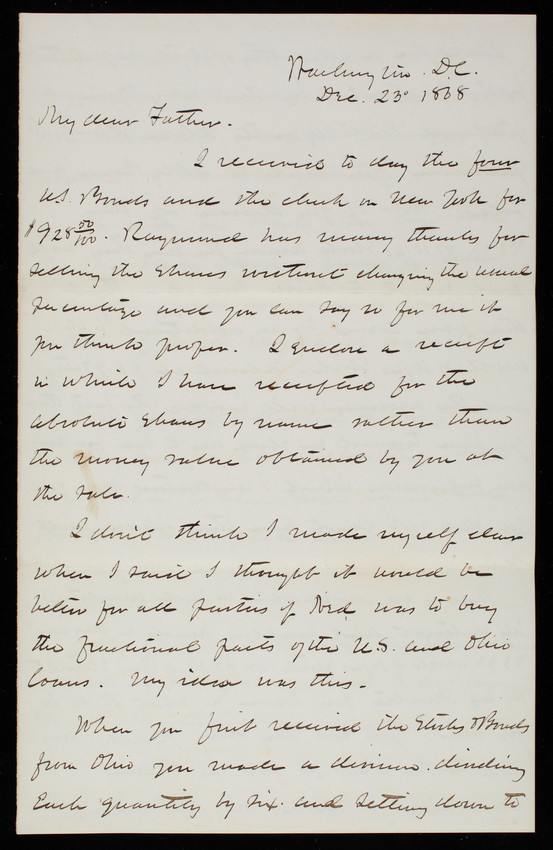 Washington. D.C.
Dec. 23d 1868
My dear Father.
I received to day the four
U.S. Bonds and the check on New York for
$928 50/100. Raymond has many thanks for
selling the shares without charging the usual
percentage and you can say so for me if
you think proper. I enclose a receipt
in which I have receipted for the
absolute shares by name rather than
the money value obtained by you at
the sale.
I don't think I made myself clear
when I said I thought it would be
better for all parties if Ned. was to buy
the fractional parts of the U.S. and Ohio
loans. My idea was this.
When you first received the Stocks & Bonds
from Ohio you made a division. dividing
each quantity by six. and setting down to